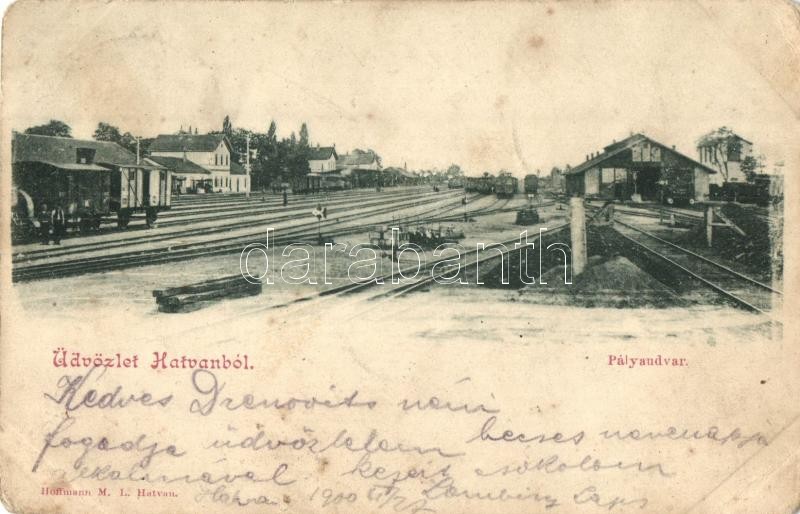 darabanth
Üdvözlet Hatvanból.
Pályaudvar.
Kedves Drenovits néni
fogadja üdvözletem becses nevenapja
alkalmával kezeit csókolom
Hoffmann M. L. Hatvan.
Hatvan 1900